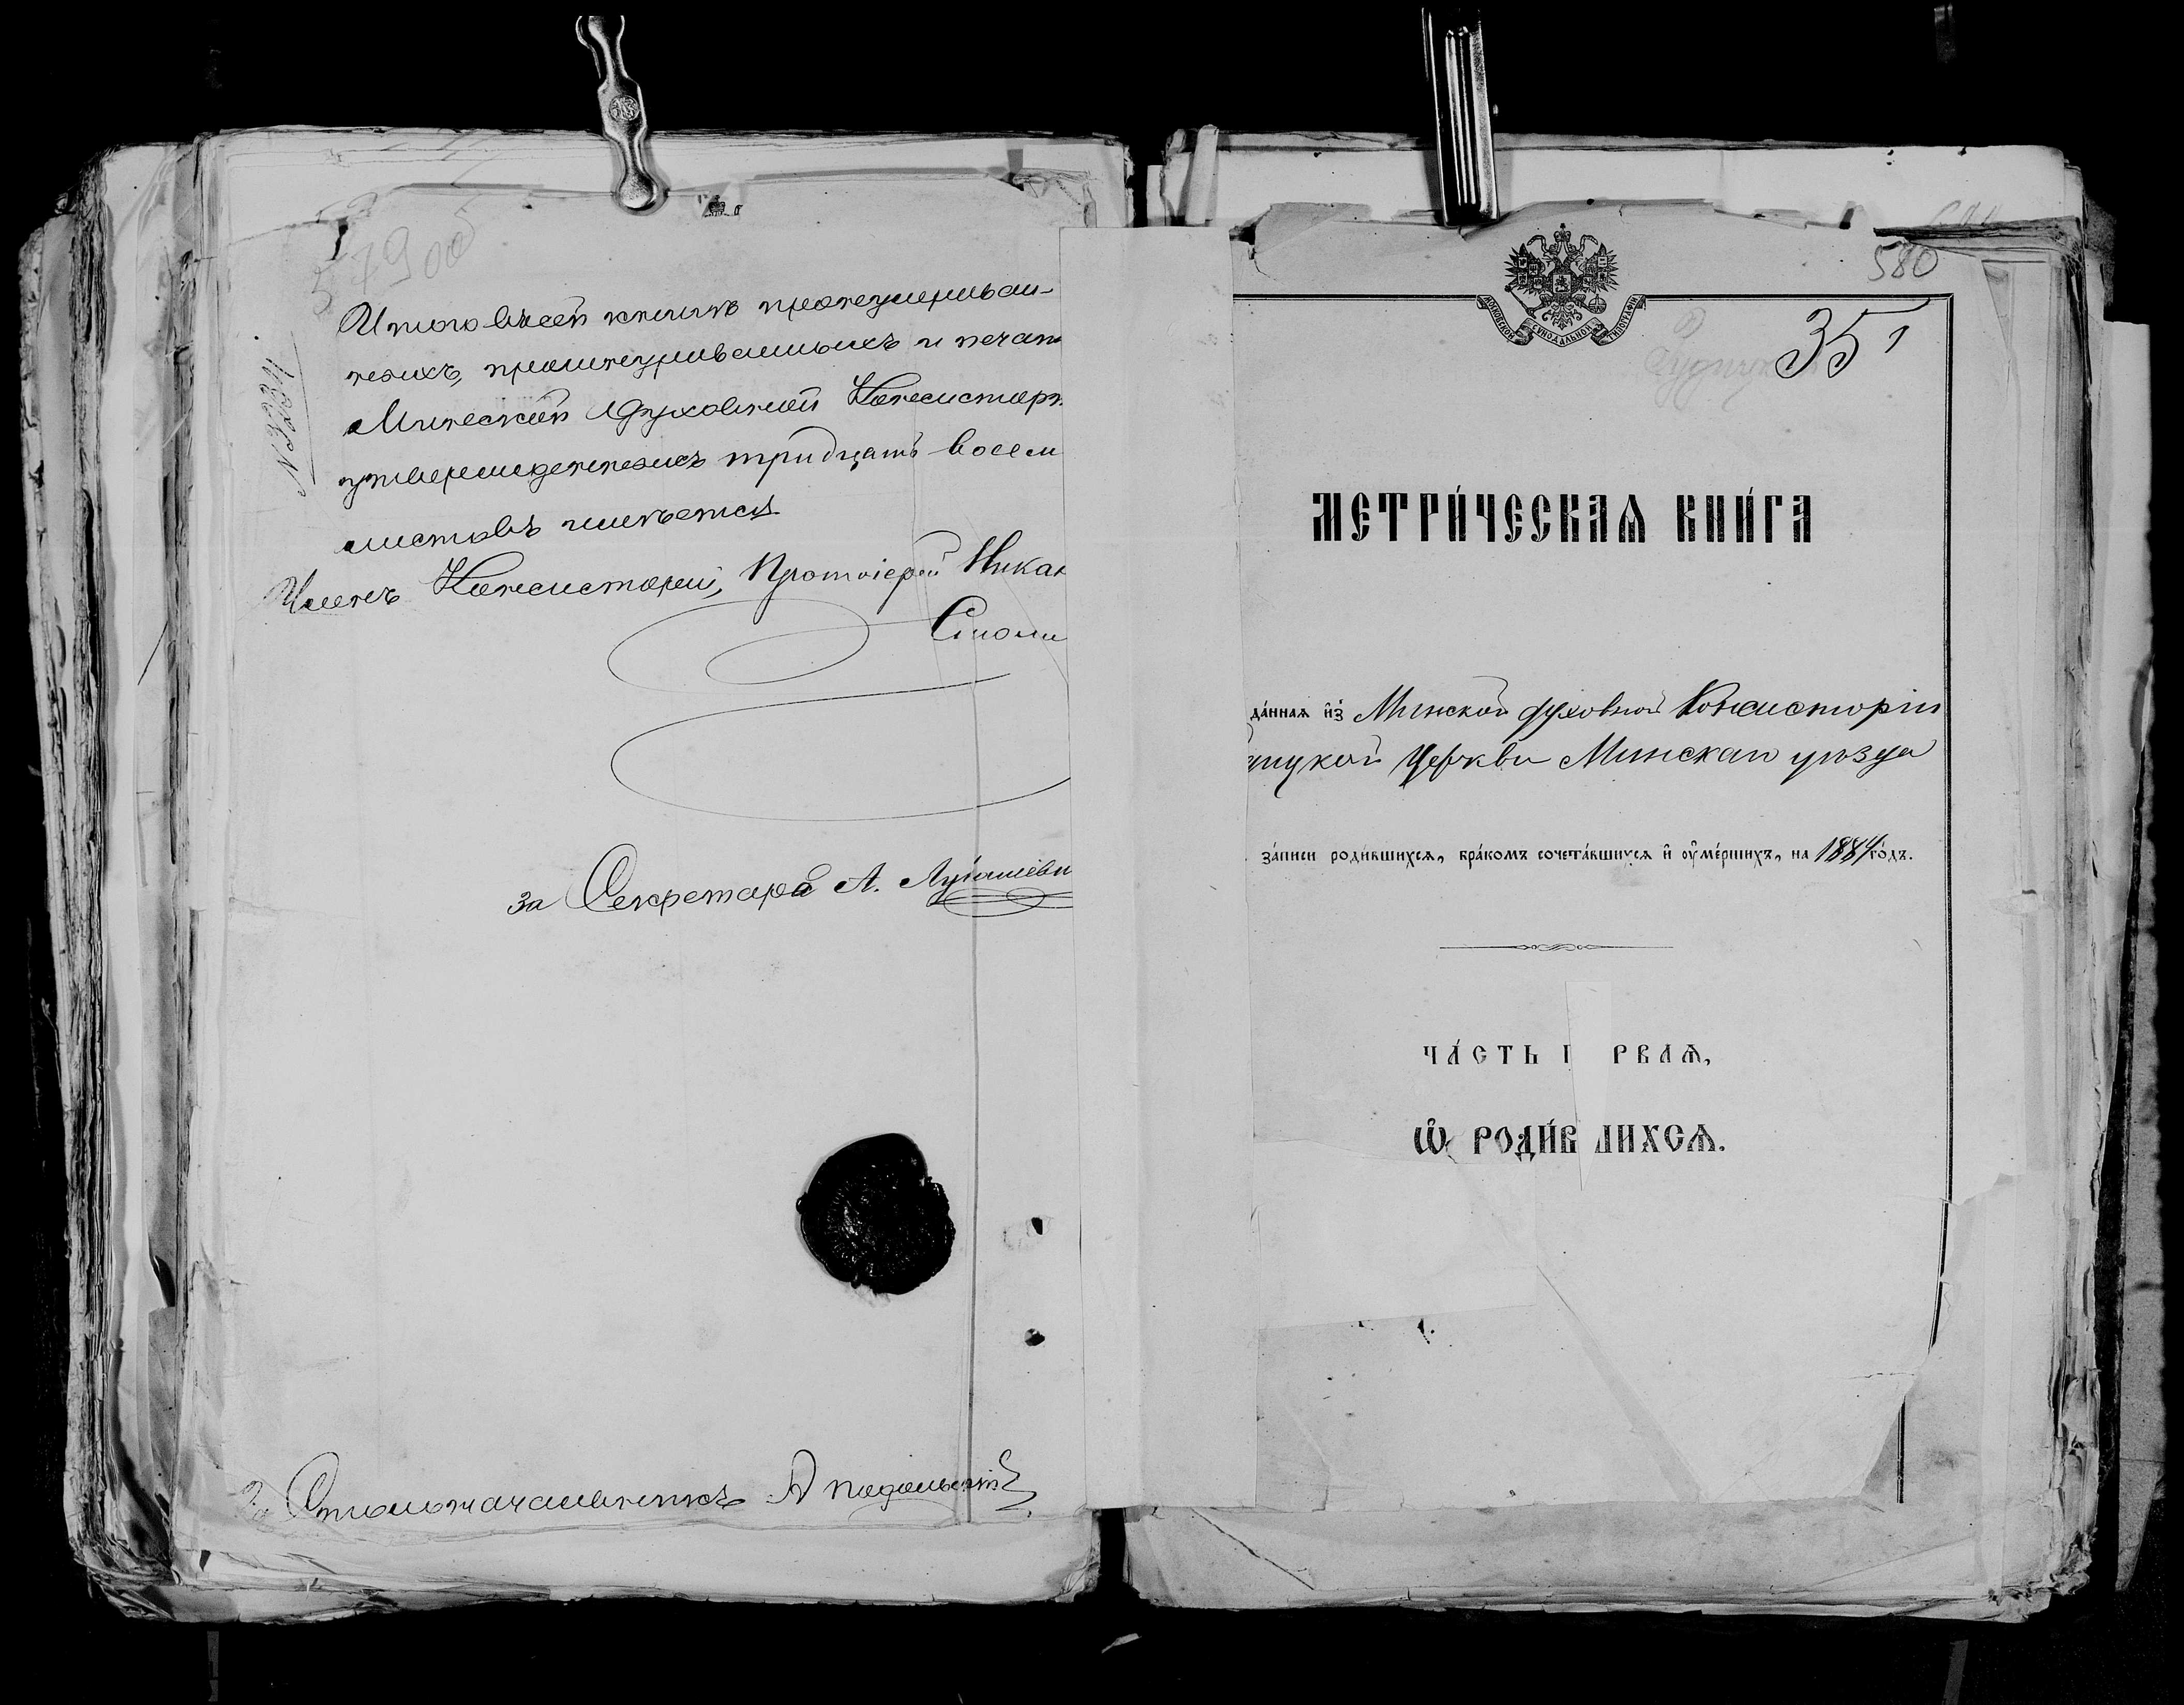 579 об
№ 3334
Итого въ сей книгѣ пронумерован-
ныхъ, прошнурованныхъ и печат
Минской Духовной Консистор
утвержденныхъ тридцать восем
листовъ имѣется
Членъ Консисторіи, Протоіерей Никан
Смоли
за Секретаря А.
За Столоначальника А Подольскій
580
МОСКОВСКОЙ СѴНОДАЛЬНОЙ ТИПОГРАФІИ
35
МЕТРИ́ЧЕСКАѦ КНИ́ГА
да́нная и҆з̾ Минской духовной Консисторіи
ицкой Церкви Минскаго уѣзда
за́писи роди́вшихсѧ, бра́комъ сочета́вшихсѧ и҆ ѹ҆ме́ршихъ, на 1884 го́дъ.
ЧА́СТЬ П РВАѦ,
Ѽ РОДИ́В ШИХСѦ.